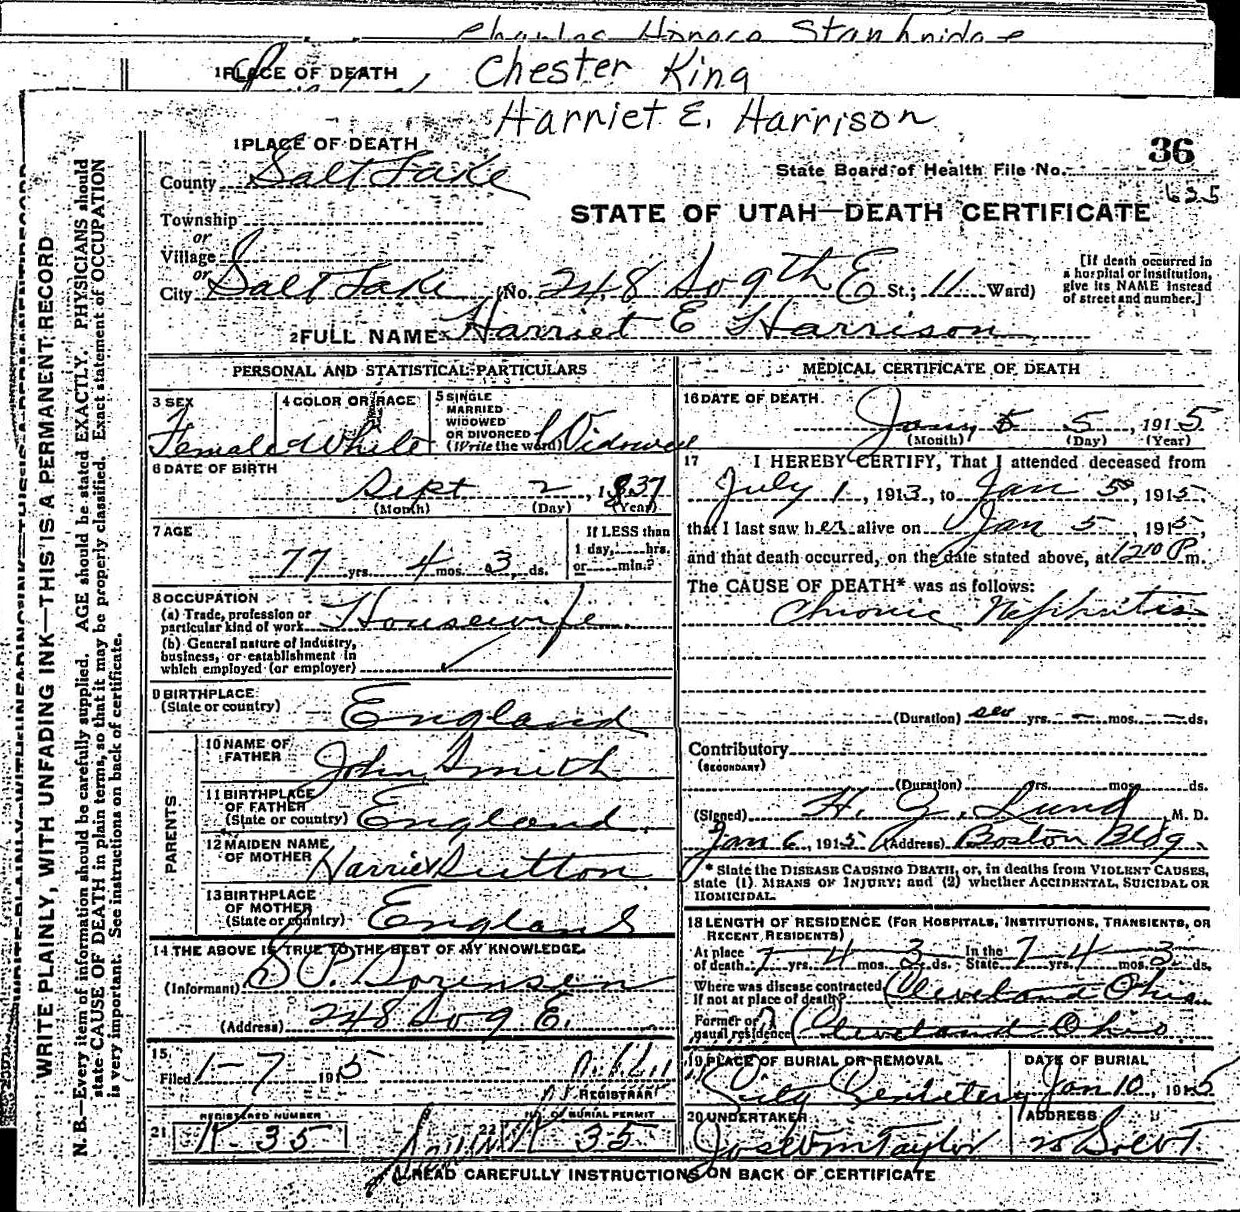 Chester King
1 PLACE OF DEATH
Harriet E. Harrison
1 PLACE OF DEATH
County Salt Lake
36
State Board of Health File No.
635
Township
or
Village
or
City Salt Lake (No. 248 So 9th E St.; 11 Ward)
STATE OF UTAH—DEATH CERTIFICATE
[If death occurred in a hospital or institution, give its NAME instead of street and number.]
2 FULL NAME Harriet E Harrison
WRITE PLAINLY, WITH UNFADING INK—THIS IS A PERMANENT RECORD
N. B.—Every item of information should be carefully supplied. AGE should be stated EXACTLY. PHYSICIANS should
state CAUSE OF DEATH in plain terms, so that it may be properly classified. Exact statement of OCCUPATION
is very important. See instructions on back of certificate.
PERSONAL AND STATISTICAL PARTICULARS
3 SEX
Female
4 COLOR OR RACE
White
5 SINGLE
MARRIED
WIDOWED
OR DIVORCED
(Write the word) Widowed
6 DATE OF BIRTH
Sept 2, 1837
(Month) (Day) (Year)
7 AGE
77 yrs. 4 mos. 3 ds.
If LESS than
1 day, hrs.
or min.?
8 OCCUPATION
(a) Trade, profession or
particular kind of work Housewife
(b) General nature of industry,
business, or establishment in
which employed (or employer)
9 BIRTHPLACE
(State or country) England
PARENTS
10 NAME OF
FATHER John Smith
11 BIRTHPLACE
OF FATHER
(State or country) England
12 MAIDEN NAME
OF MOTHER Harriet Sutton
13 BIRTHPLACE
OF MOTHER
(State or country) England
14 THE ABOVE IS TRUE TO THE BEST OF MY KNOWLEDGE.
(Informant) S P. Sorensen
(Address) 248 So 9 E.
15
Filed 1-7 1915
REGISTRAR
REGISTERED NUMBER
21 K-35
NO. OF BURIAL PERMIT
22 K 35
MEDICAL CERTIFICATE OF DEATH
16 DATE OF DEATH
Jany 5, 1915
(Month) (Day) (Year)
17 I HEREBY CERTIFY, That I attended deceased from
July 1, 1913, to Jan 5, 1915,
that I last saw her alive on Jan 5, 1915,
and that death occurred, on the date stated above, at 1210 P m.
The CAUSE OF DEATH* was as follows:
Chronic Nephritis
(Duration) sev yrs. — mos. — ds.
Contributory
(SECONDARY)
(Duration) yrs. mos. ds.
(Signed) H. J. Lund, M. D.
Jan 6, 1915 (Address) Boston Bldg.
* State the DISEASE CAUSING DEATH, or, in deaths from VIOLENT CAUSES,
state (1) MEANS OF INJURY; and (2) whether ACCIDENTAL, SUICIDAL OR
HOMICIDAL.
18 LENGTH OF RESIDENCE (FOR HOSPITALS, INSTITUTIONS, TRANSIENTS, OR
RECENT RESIDENTS)
At place of death 7 yrs. 4 mos. 3 ds. In the State 7 yrs. 4 mos. 3 ds.
Where was disease contracted,
if not at place of death? Cleveland Ohio
Former or
usual residence Cleveland Ohio
19 PLACE OF BURIAL OR REMOVAL
City Cemetery
DATE OF BURIAL
Jan 10, 1915
20 UNDERTAKER
Joseph Wm Taylor
ADDRESS
READ CAREFULLY INSTRUCTIONS ON BACK OF CERTIFICATE